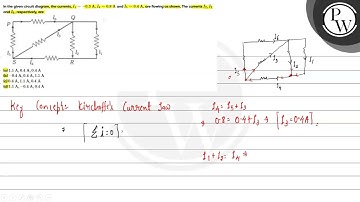 In the given circuit diagram, the currents, I₁ = −0.3 A, I₄ = 0.8 A and I₅ = 0.4 A, are flowing as shown. The currents I₂, I₃
and I₆, respectively, are:
P I₆ Q
I₃ I₂ I₁
I₅
S I₄ R
(a) 1.1 A, 0.4 A, 0.4 A
(b) −0.4 A, 0.4 A, 1.1 A
(c) 0.4 A, 1.1 A, 0.4 A
(d) 1.1 A, −0.4 A, 0.4 A
Key Concept: Kirchoff's Current Law
⇒ [∑i=0]
I₄ = I₅ + I₃
⇒ 0.8 = 0.4 + I₃ ⇒ [I₃ = 0.4A].
I₁ + I₂ = I₄ ⇒